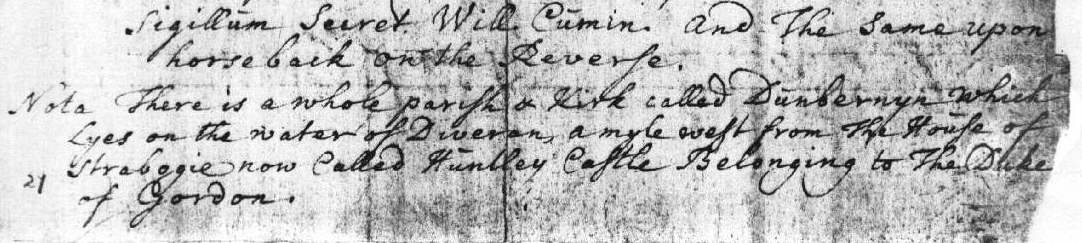 Sigillum Secret. Will. Cumin. And The Same upon
horseback on the Reverse.
Nota There is a whole parish & Kirk called Dunbernyn which
Lyes on the water of Diveran, a myle west from The House of
Strabogie now Called Huntley Castle Belonging to The Duke
21 of Gordon.